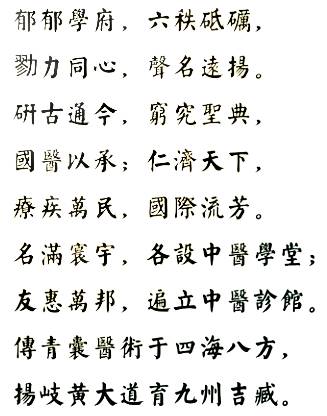 郁郁學府，六秩砥礪，
勠力同心，聲名遠揚。
研古通今，窮究聖典，
國醫以承；仁濟天下，
療疾萬民，國際流芳。
名滿寰宇，各設中醫學堂；
友惠萬邦，遍立中醫診館。
傳青囊醫術于四海八方，
揚岐黄大道育九州吉臧。